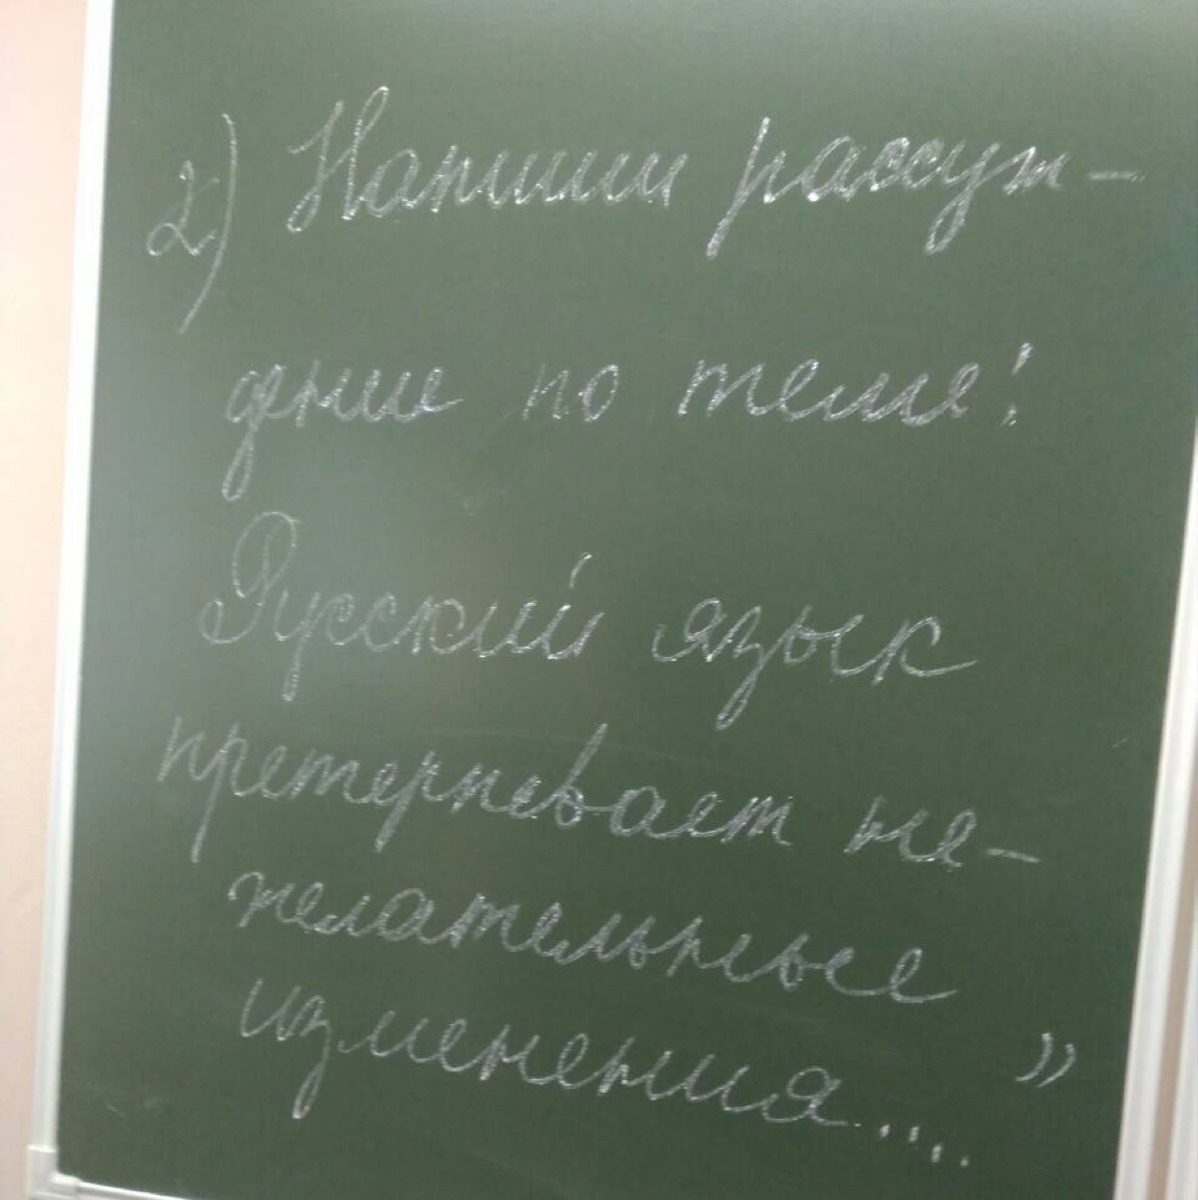 2) Напиши рассуж-
дение по теме:
Русский язык
претерпевает не-
желательные
изменения...."